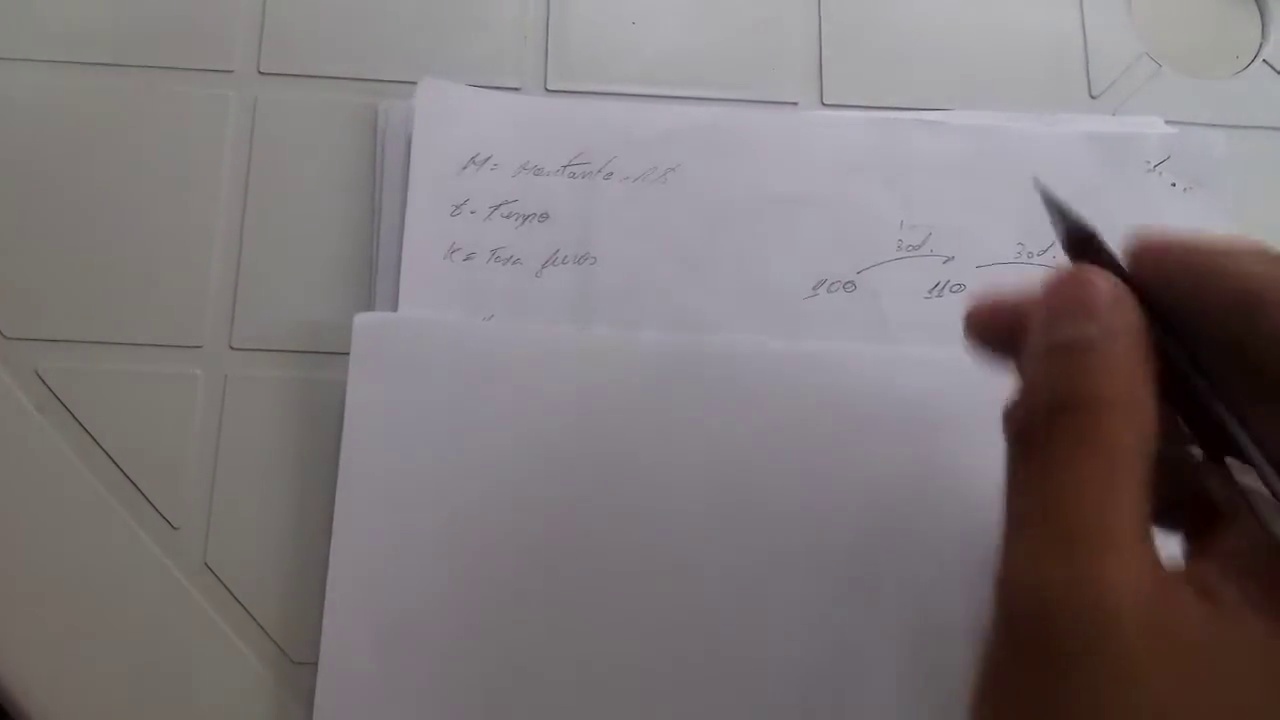 M = Montante. R$
t - Tempo
K = Taxa juros
30d. 30d.
100 110